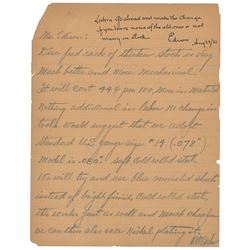 go ahead and make the change
if you have none of the old ones or not
many in stock
Edison
Mr Edison:
feed each of thicker stock is very
Much better and more Mechanical.
It will cost 44¢ per 100. More in Material
Nothing additional in labor no change in
tools. Would suggest that we adopt
Standard U.S. gauge size #14 (.078")
Model is .080" soft cold rolled steel
will try and use blue annealed steel
instead of bright finish, cold rolled steel,
this works just as well and much cheaper
we can then also use a Nickel plating